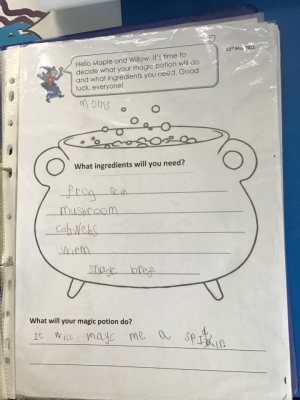 Hello Maple and Willow. It's time to
decide what your magic potion will do
and what ingredients you need. Good
luck, everyone!
23rd May 2022
What ingredients will you need?
frog
mushroom
cobwebs
wirm
snayc
What will your magic potion do?
It will mayc me a